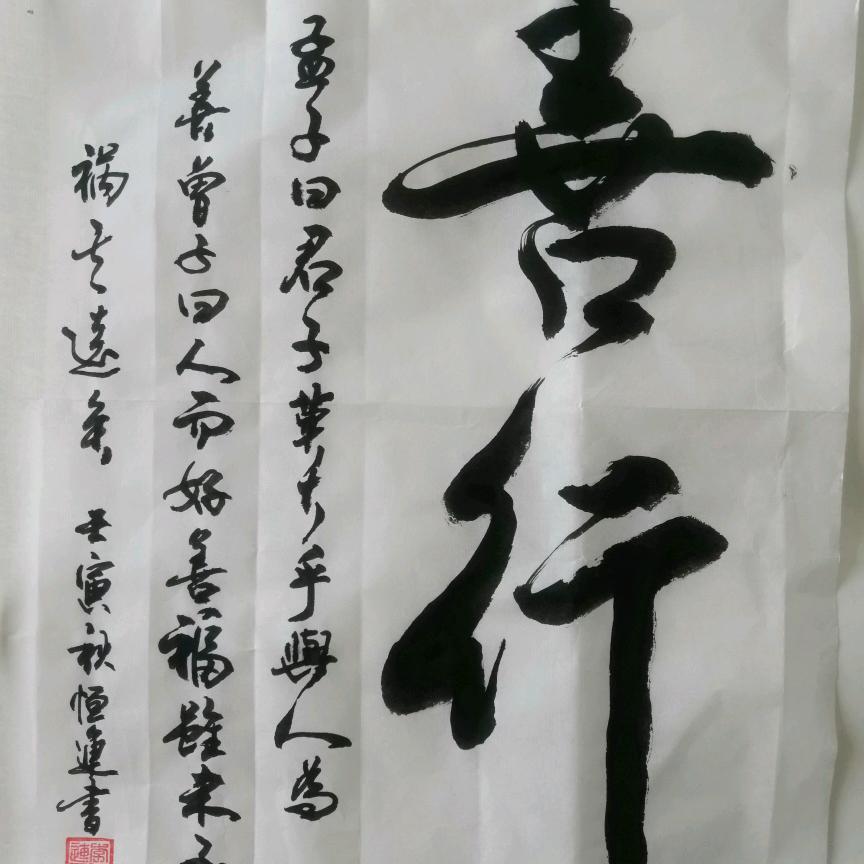 善行
孟子曰君子莫大乎與人為
善曾子曰人而好善福雖未
禍其遠矣 壬寅秋恒運書